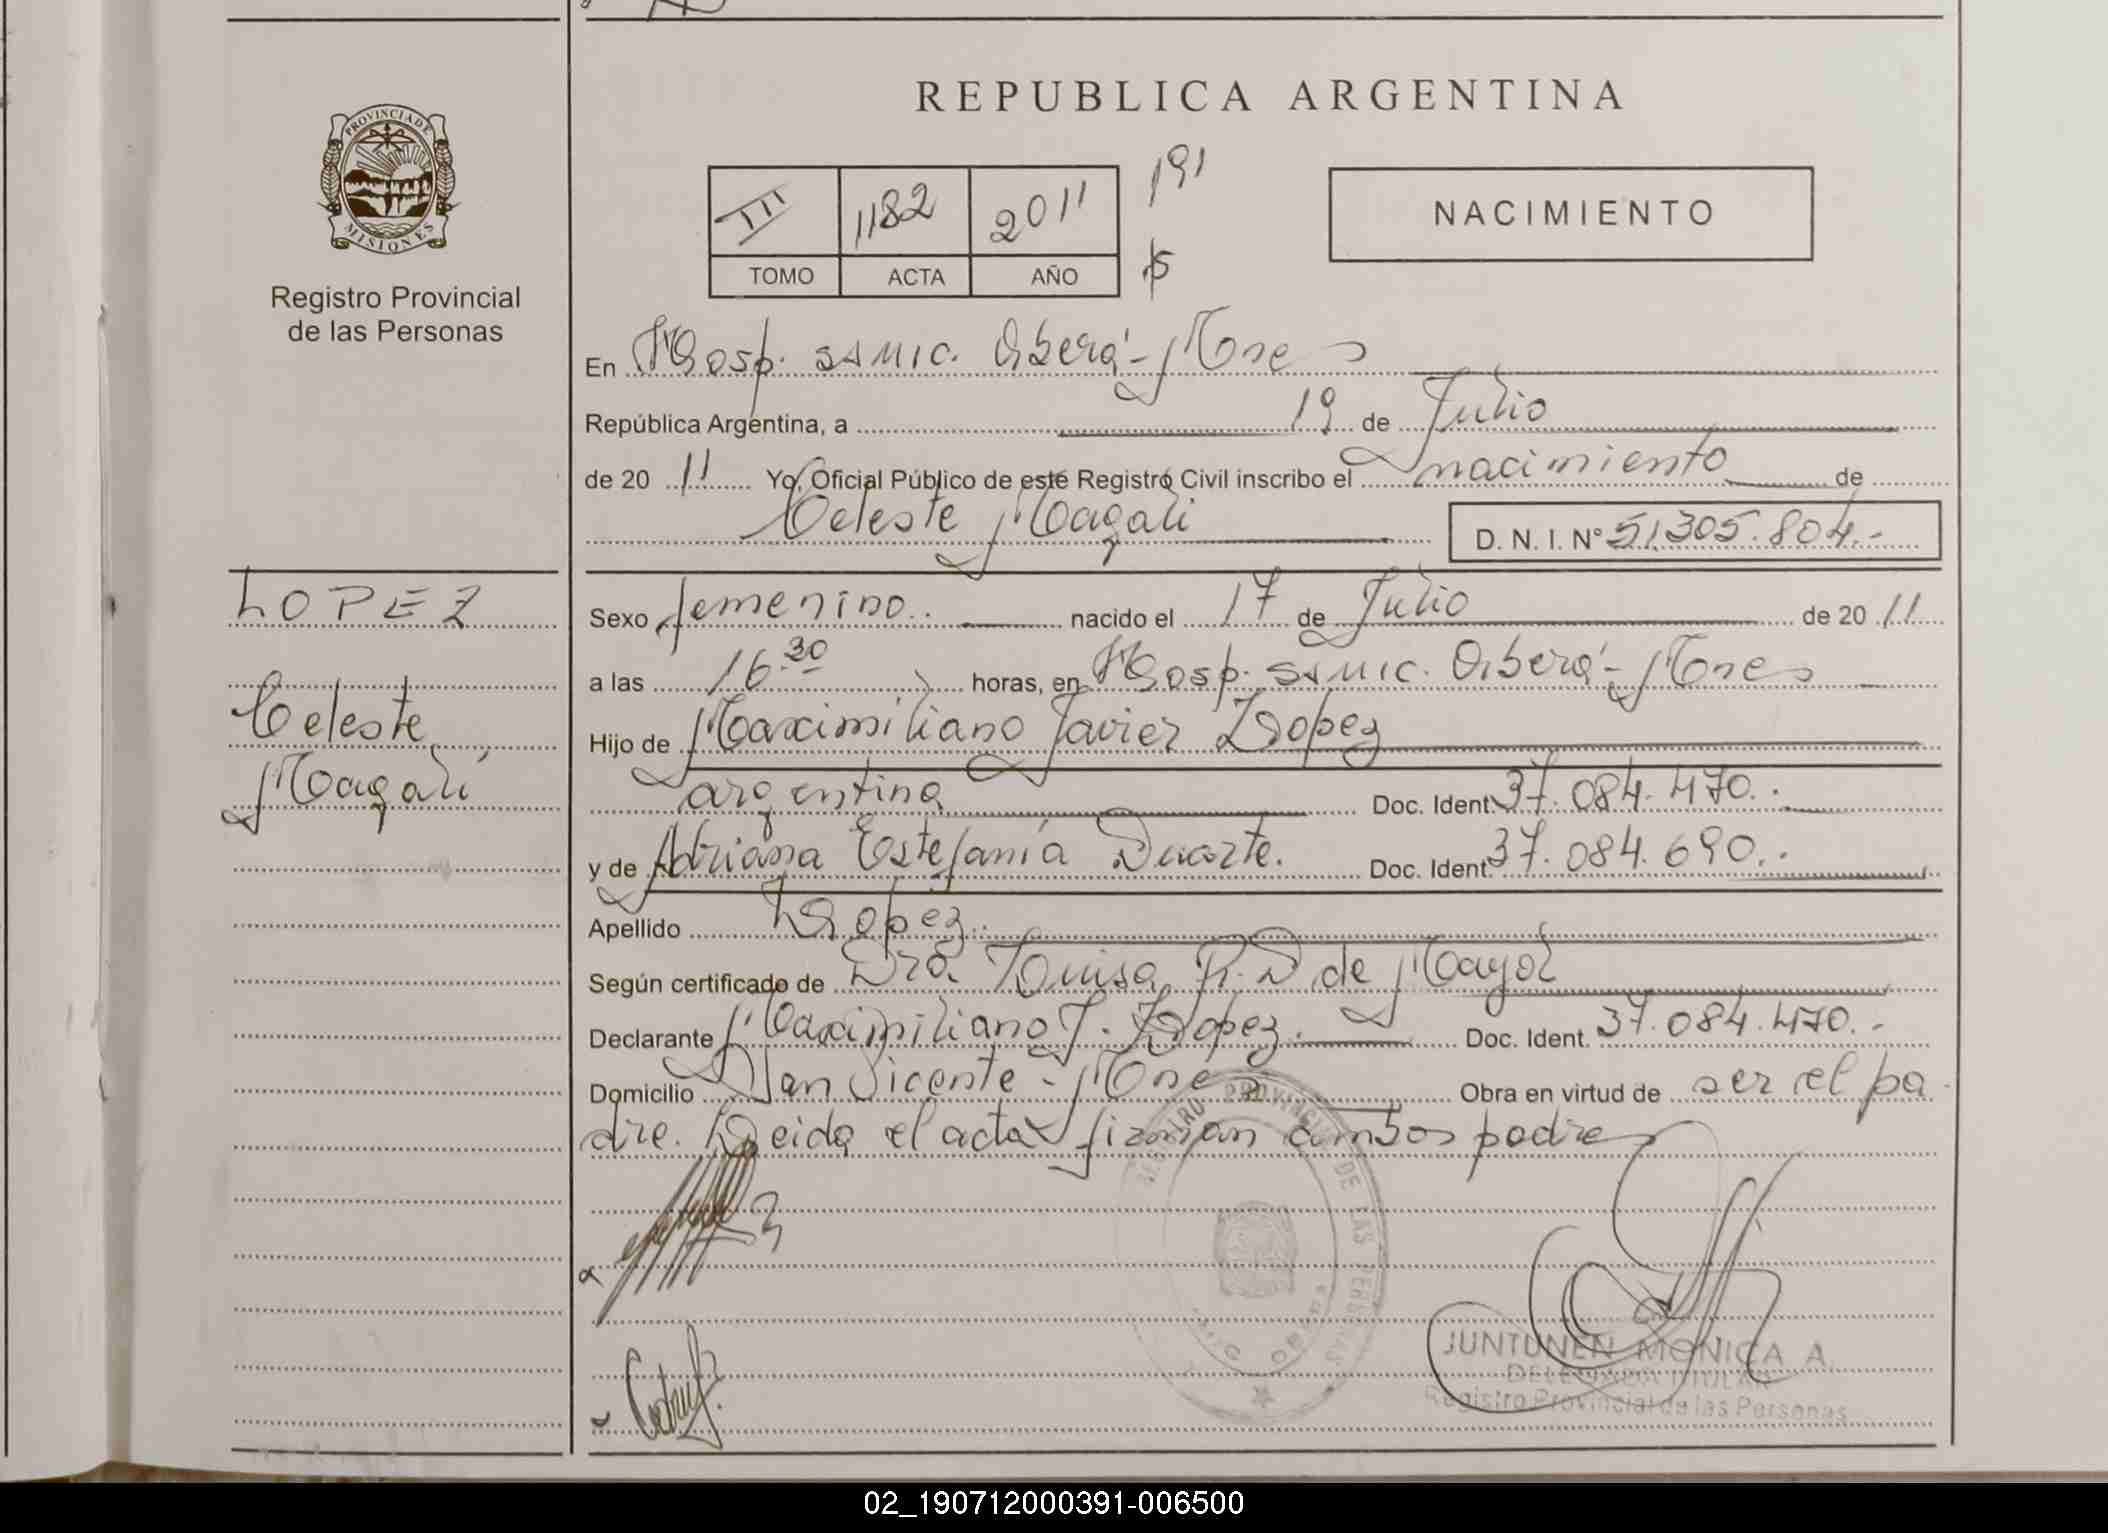 PROVINCIA DE
MISIONES
Registro Provincial
de las Personas
LOPEZ
Celeste
Magalí
REPUBLICA ARGENTINA
III 1182 2011 191
TOMO ACTA AÑO
NACIMIENTO
En Hosp. SAMIC. Oberá - Mnes
República Argentina, a 19 de Julio
de 20 11 Yo, Oficial Público de este Registro Civil inscribo el nacimiento de
Celeste Magalí D. N. I. Nº 51.305.804.-
Sexo femenino. nacido el 17 de Julio de 20 11
a las 16 30 horas, en Hosp. SAMIC. Oberá - Mnes
Hijo de Maximiliano Javier Lopez
argentina Doc. Ident. 37.084.470.-
y de Adriana Estefanía Duarte. Doc. Ident. 37.084.690.-
Apellido Lopez.
Según certificado de Dra. Luisa R. D de Mayol
Declarante Maximiliano J. Lopez. Doc. Ident. 37.084.470.-
Domicilio San Vicente - Mnes Obra en virtud de ser el pa
dre. Leida el acta firman ambos padres
REGISTRO PROVINCIAL DE LAS PERSONAS
JUNTUNEN MONICA A.
DELEGADA TITULAR
Registro Provincial de las Personas
02_190712000391-006500